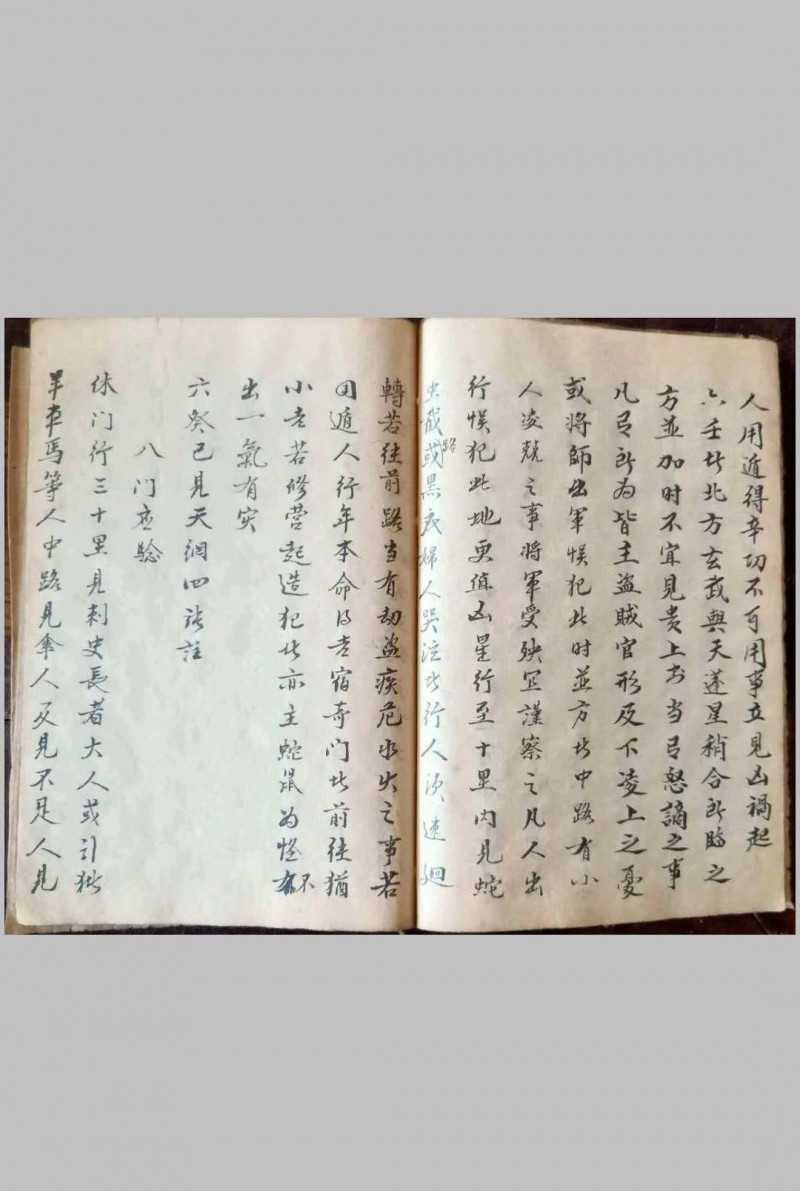 人用遁得辛功不可用事立見凶禍起
六壬於北方玄武與天蓬星稍合所臨之
方並加时不宜見贵上书当有怒謫之事
凡有所为皆主盜賊官形及下凌上之憂
或將師出軍悮犯此时並方於中路有小
人凌兢之事將軍受殃宜謹察之凡人出
行悮犯此地更值凶星行至十里内見蛇
虫截路或黑衣婦人哭泣於行人须速廻
轉若往前路当有劫盜疾危水火之事若
因遁人行年本命得吉宿奇门於前往猶
小吉若修营起造犯於亦主蛇鼠为怪不
出一氣有灾
六癸已見天網四張註
八门应驗
休门行三十里見刺史長者大人或引
羊車馬等人中路見傘人及見不足人見